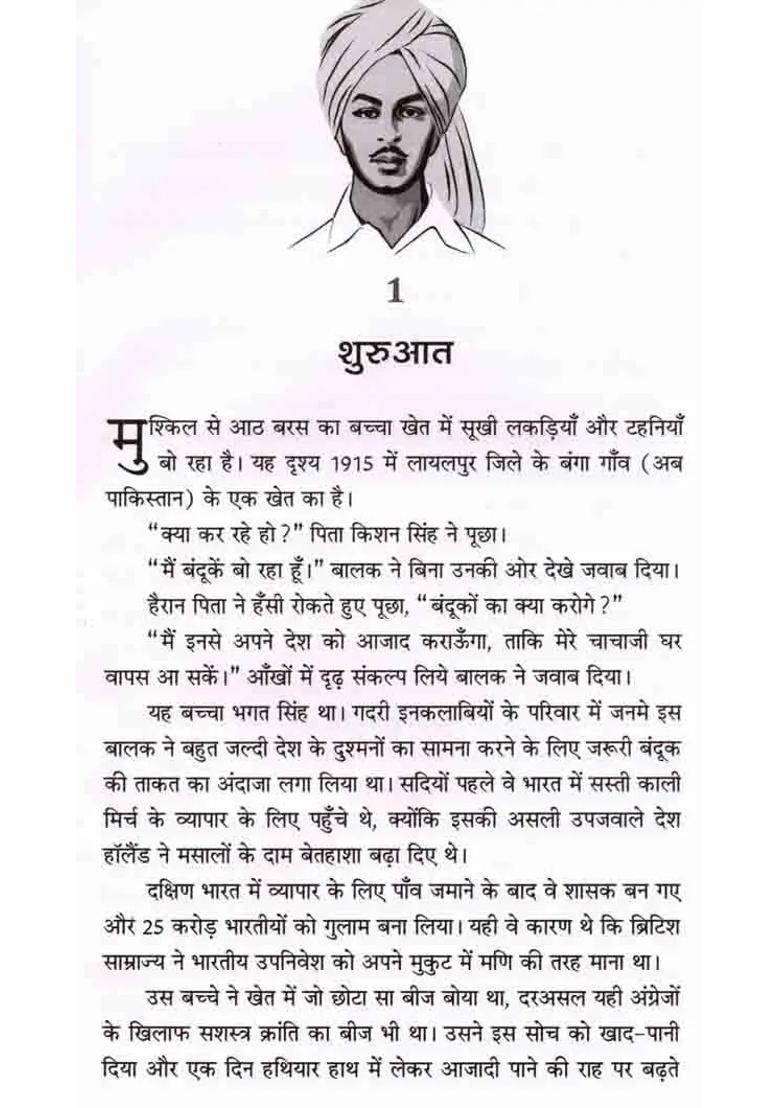 1
शुरुआत
मुश्किल से आठ बरस का बच्चा खेत में सूखी लकड़ियाँ और टहनियाँ
बो रहा है। यह दृश्य 1915 में लायलपुर जिले के बंगा गाँव (अब
पाकिस्तान) के एक खेत का है।
“क्या कर रहे हो?” पिता किशन सिंह ने पूछा।
“मैं बंदूकें बो रहा हूँ।” बालक ने बिना उनकी ओर देखे जवाब दिया।
हैरान पिता ने हँसी रोकते हुए पूछा, “बंदूकों का क्या करोगे?”
“मैं इनसे अपने देश को आजाद कराऊँगा, ताकि मेरे चाचाजी घर
वापस आ सकें।” आँखों में दृढ़ संकल्प लिये बालक ने जवाब दिया।
यह बच्चा भगत सिंह था। गदरी इनकलाबियों के परिवार में जनमे इस
बालक ने बहुत जल्दी देश के दुश्मनों का सामना करने के लिए जरूरी बंदूक
की ताकत का अंदाजा लगा लिया था। सदियों पहले वे भारत में सस्ती काली
मिर्च के व्यापार के लिए पहुँचे थे, क्योंकि इसकी असली उपजवाले देश
हॉलैंड ने मसालों के दाम बेतहाशा बढ़ा दिए थे।
दक्षिण भारत में व्यापार के लिए पाँव जमाने के बाद वे शासक बन गए
और 25 करोड़ भारतीयों को गुलाम बना लिया। यही वे कारण थे कि ब्रिटिश
साम्राज्य ने भारतीय उपनिवेश को अपने मुकुट में मणि की तरह माना था।
उस बच्चे ने खेत में जो छोटा सा बीज बोया था, दरअसल यही अंग्रेजों
के खिलाफ सशस्त्र क्रांति का बीज भी था। उसने इस सोच को खाद-पानी
दिया और एक दिन हथियार हाथ में लेकर आजादी पाने की राह पर बढ़ते